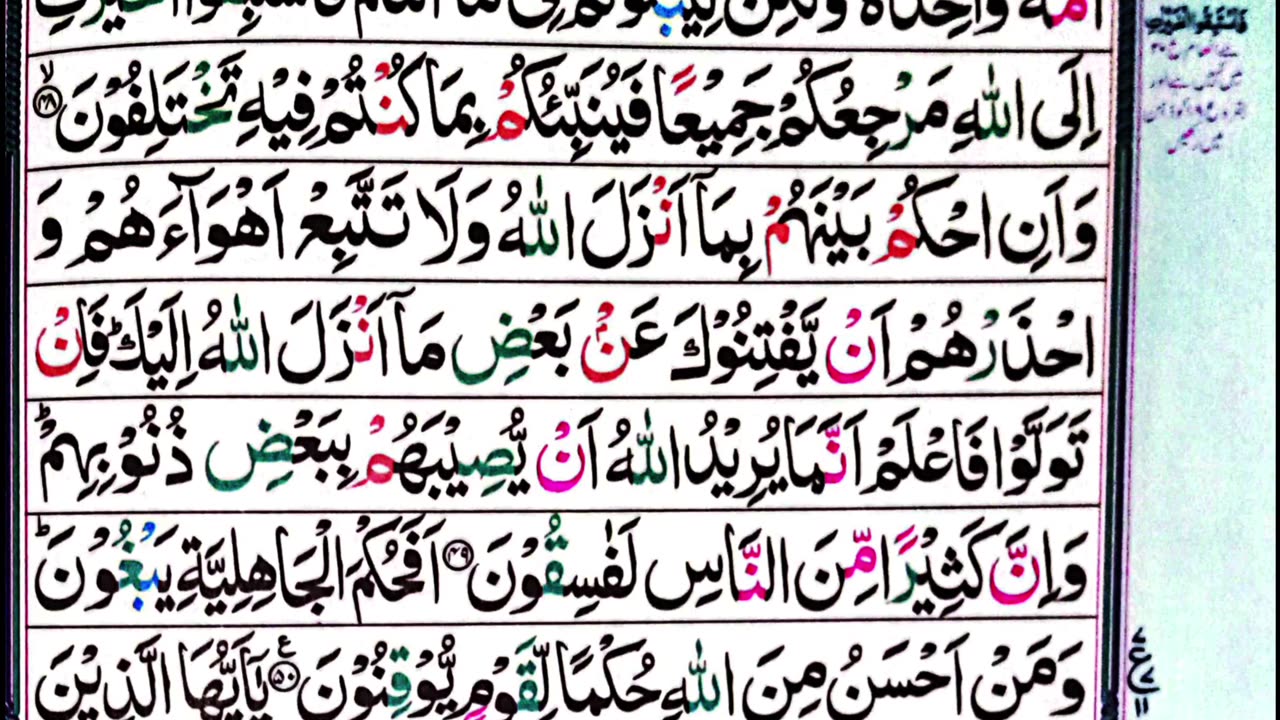 اِلَى اللّٰهِ مَرْجِعُكُمْ جَمِيْعًا فَيُنَبِّئُكُمْ بِمَا كُنْتُمْ فِيْهِ تَخْتَلِفُوْنَ ۙ﴿۴۸﴾
وَاَنِ احْكُمْ بَيْنَهُمْ بِمَاۤ اَنْزَلَ اللّٰهُ وَلَا تَتَّبِعْ اَهْوَآءَهُمْ وَ
احْذَرْهُمْ اَنْ يَّفْتِنُوْكَ عَنْۢ بَعْضِ مَاۤ اَنْزَلَ اللّٰهُ اِلَيْكَ ؕ فَاِنْ
تَوَلَّوْا فَاعْلَمْ اَنَّمَا يُرِيْدُ اللّٰهُ اَنْ يُّصِيْبَهُمْ بِبَعْضِ ذُنُوْبِهِمْ ؕ
وَاِنَّ كَثِيْرًا مِّنَ النَّاسِ لَفٰسِقُوْنَ ﴿۴۹﴾ اَفَحُكْمَ الْجَاهِلِيَّةِ يَبْغُوْنَ ؕ
وَمَنْ اَحْسَنُ مِنَ اللّٰهِ حُكْمًا لِّقَوْمٍ يُّوْقِنُوْنَ ﴿۵۰﴾ؑ يٰۤاَيُّهَا الَّذِيْنَ